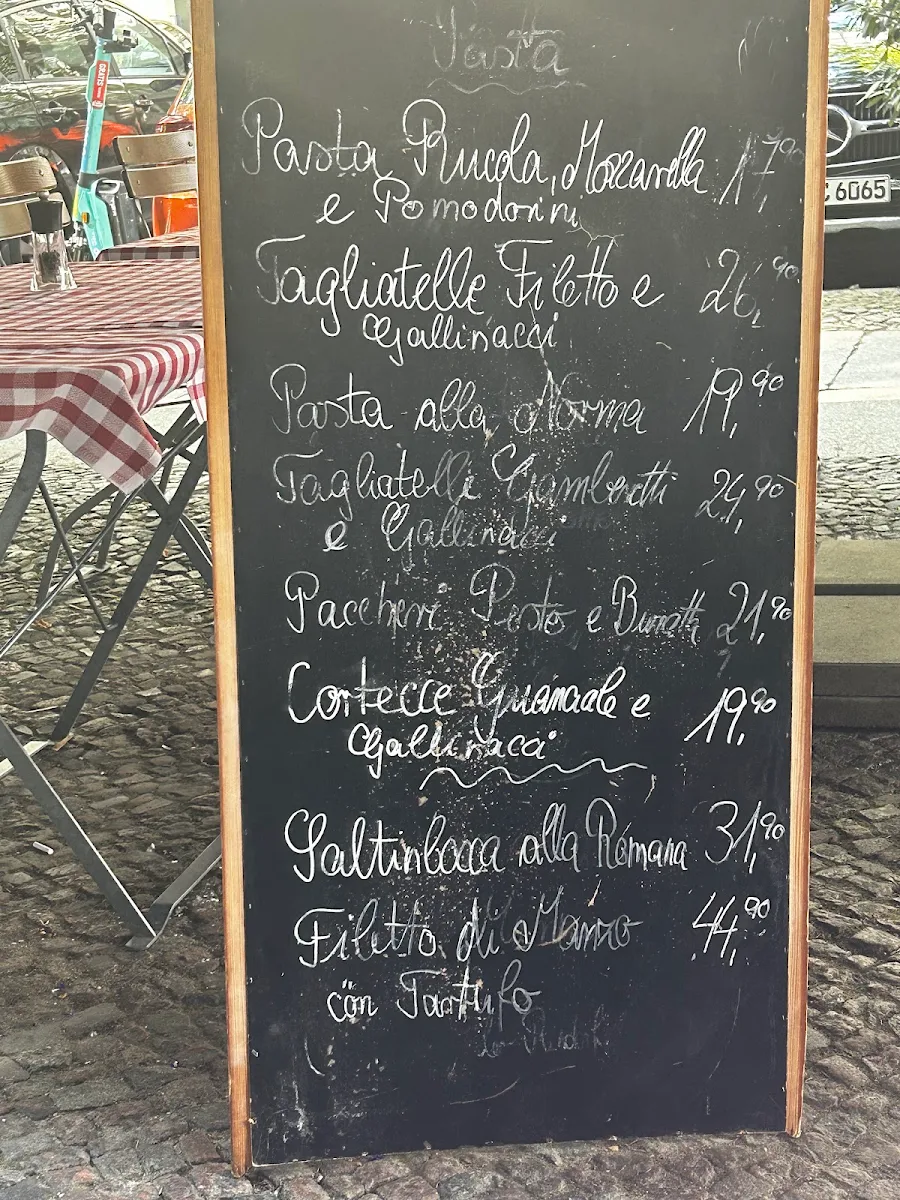 Pasta
Pasta Rucola, Mozzarella 17,90
e Pomodorini
Tagliatelle Filetto e 26,90
Gallinacci
Pasta alla Norma 19,90
Tagliatelle Gamberetti 24,90
e Gallinacci
Paccheri Pesto e Buratta 21,90
Cortecce Guanciale e 19,90
Gallinacci
Saltinbocca alla Romana 31,90
Filetto di Manzo 44,90
con Tartufo
GRATIS
6065